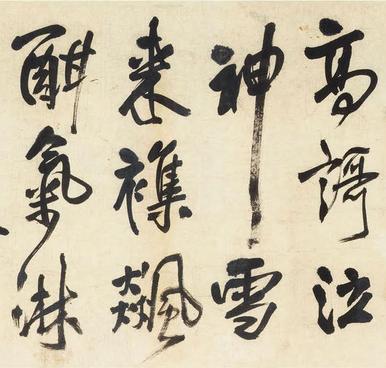 高謌泣
神雪
襍飆
酣氣淋